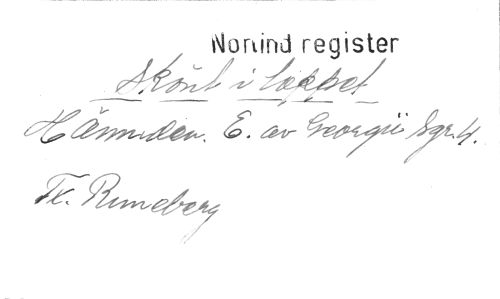 Norlind register
Skönt i loppet
Hänniden. E. av Georgii Sgr. 4.
Fr. Runeberg